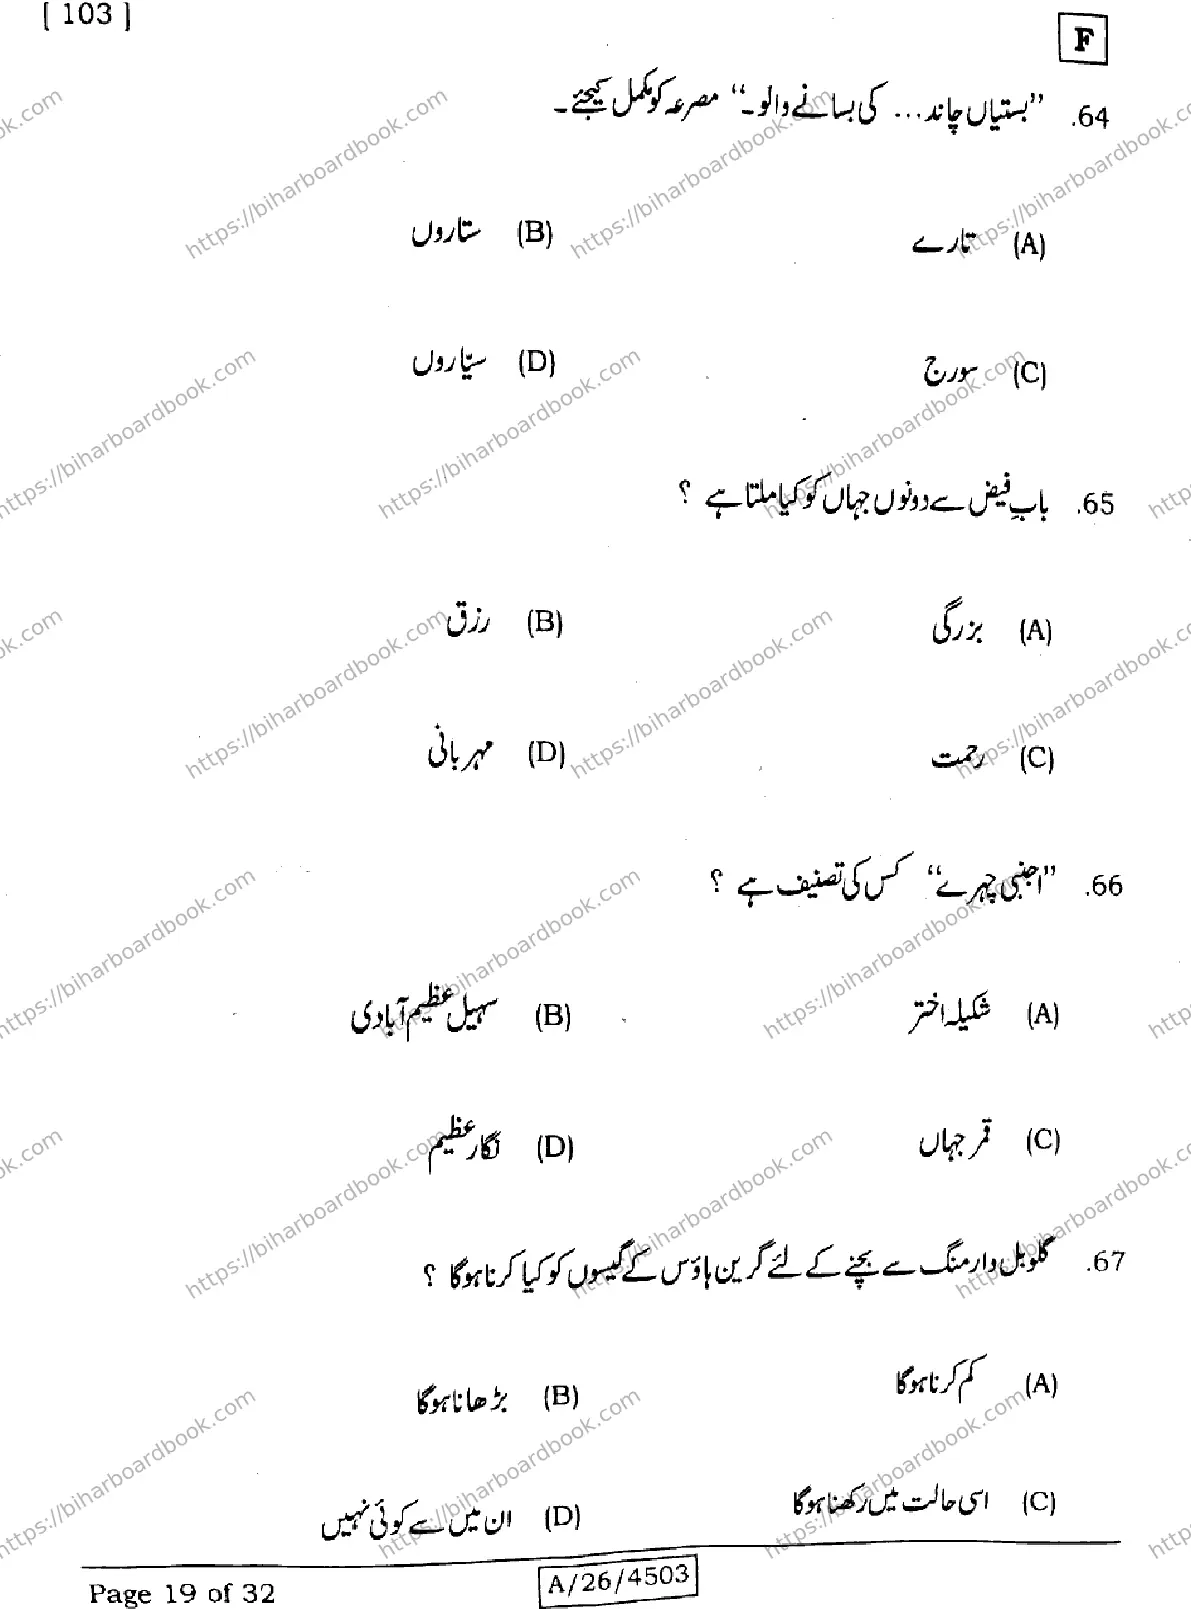 [ 103 ]
F
64. ”بستیاں چاند... کی بسانے والو۔“ مصرعہ کو مکمل کیجئے۔
(A) تارے (B) ستاروں
(C) سورج (D) سیّاروں
65. بابِ فیض سے دونوں جہاں کو کیا ملتا ہے ؟
(A) بزرگی (B) رزق
(C) رحمت (D) مہربانی
66. ”اجنبی چہرے“ کس کی تصنیف ہے ؟
(A) شکیلہ اختر (B) سہیل عظیم آبادی
(C) قمر جہاں (D) نگار عظیم
67. گلوبل وارمنگ سے بچنے کے لئے گرین ہاؤس کے گیسوں کو کیا کرنا ہوگا ؟
(A) کم کرنا ہوگا (B) بڑھانا ہوگا
(C) اسی حالت میں رکھنا ہوگا (D) ان میں سے کوئی نہیں
Page 19 of 32
A/26/4503
https://biharboardbook.com